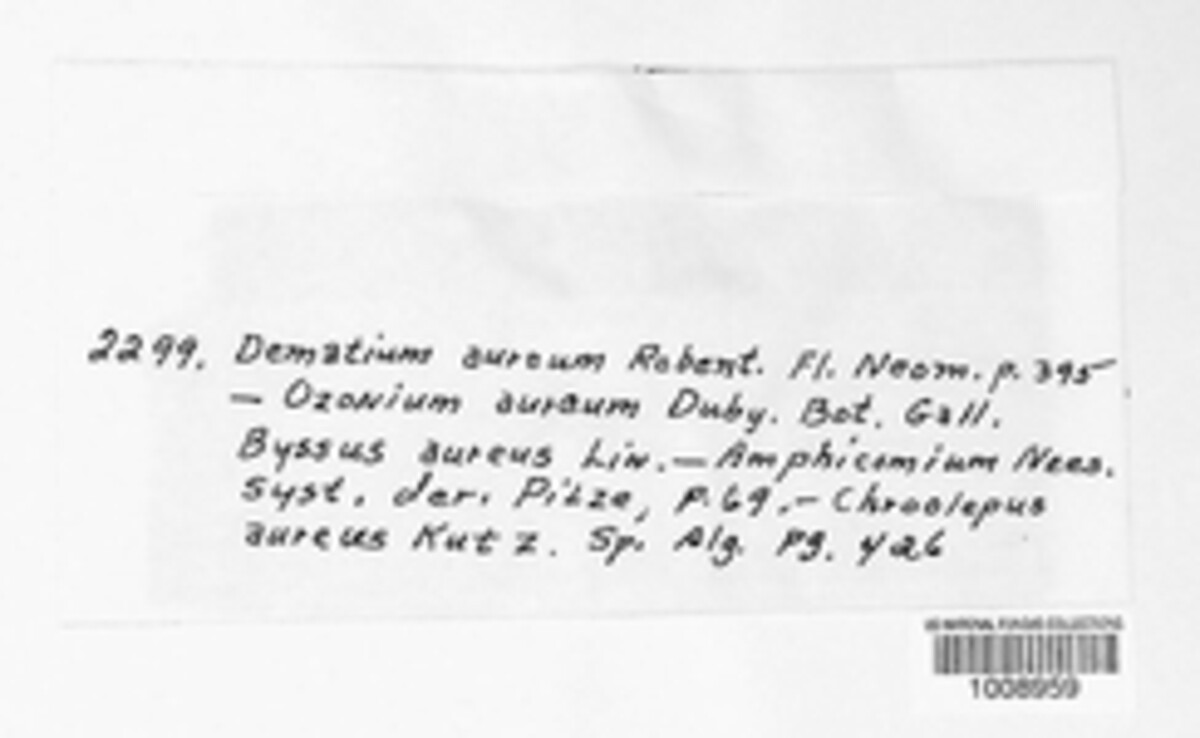 2299. Dematium aureum Rabent. Fl. Neom. p. 395
— Ozonium aureum Duby. Bot. Gall.
Byssus aureus Lin. — Amphicomium Nees.
Syst. der. Pilze, p. 69. — Chroolepus
aureus Kutz. Sp. Alg. pg. 426
US NATIONAL FUNGUS COLLECTIONS
1008959